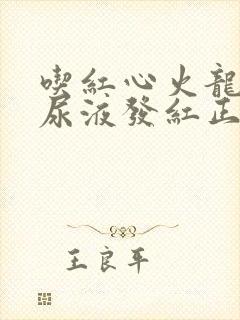 喫紅心火龍
尿液發紅正
王良平